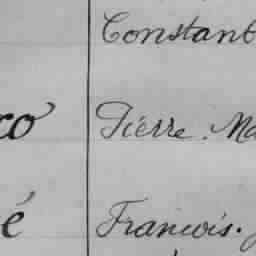 Constant
co Pierre. Ma
é François. J